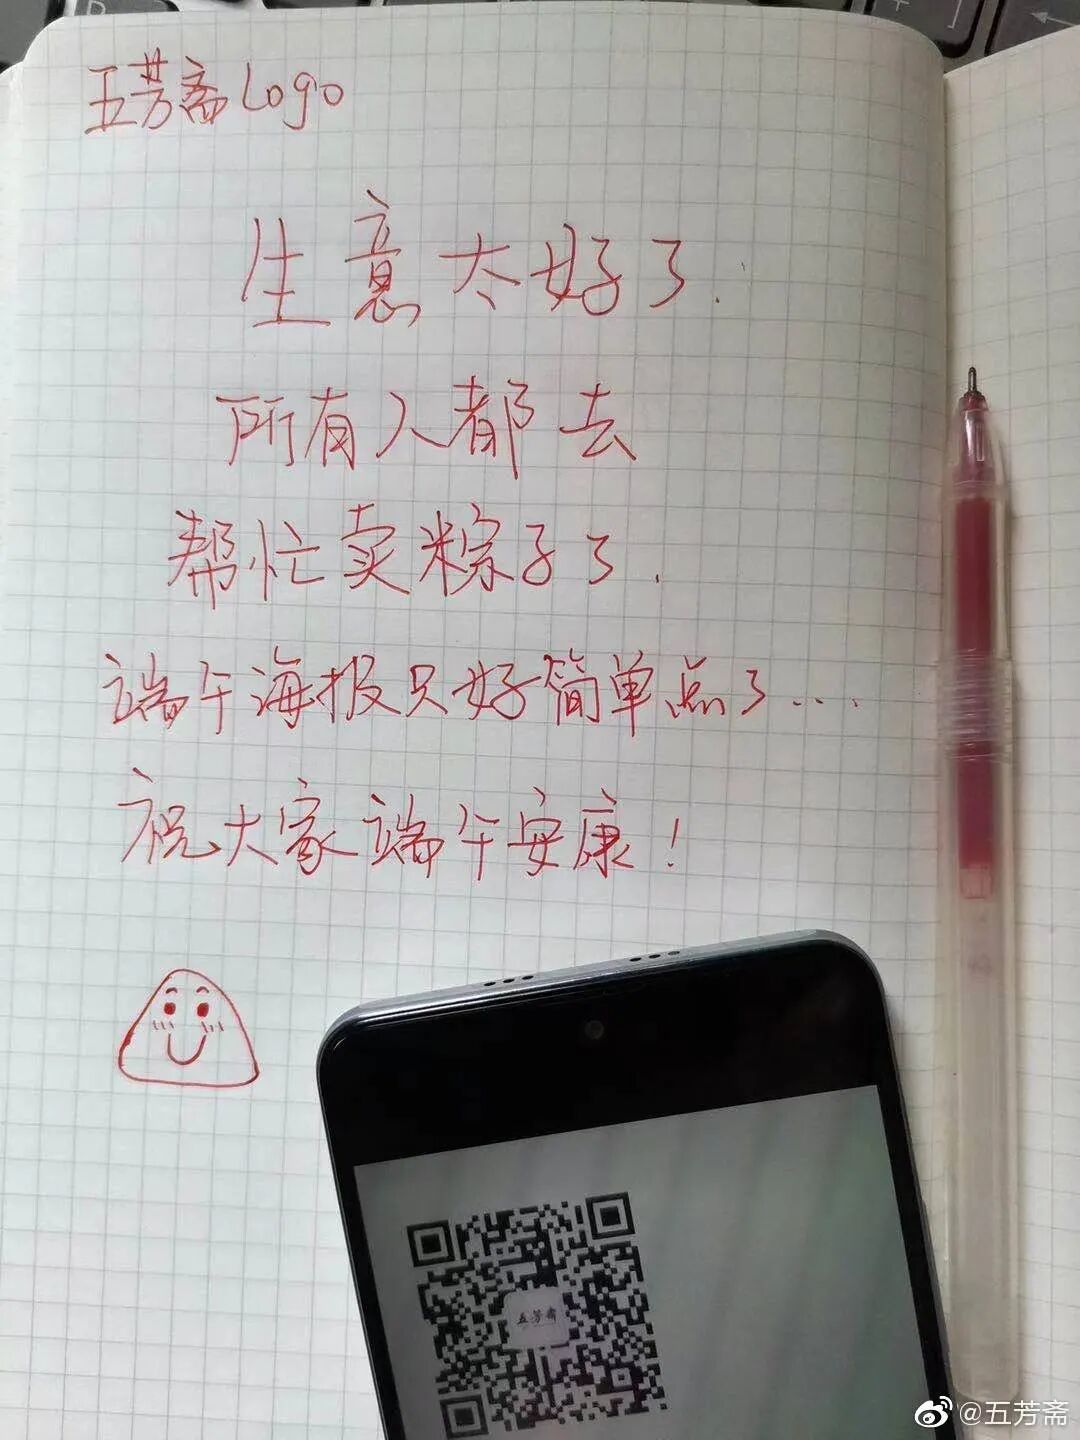 五芳斋Logo
生意太好了.
所有人都去
帮忙卖粽子了.
端午海报只好简单点了...
祝大家端午安康!
五芳斋
@五芳斋